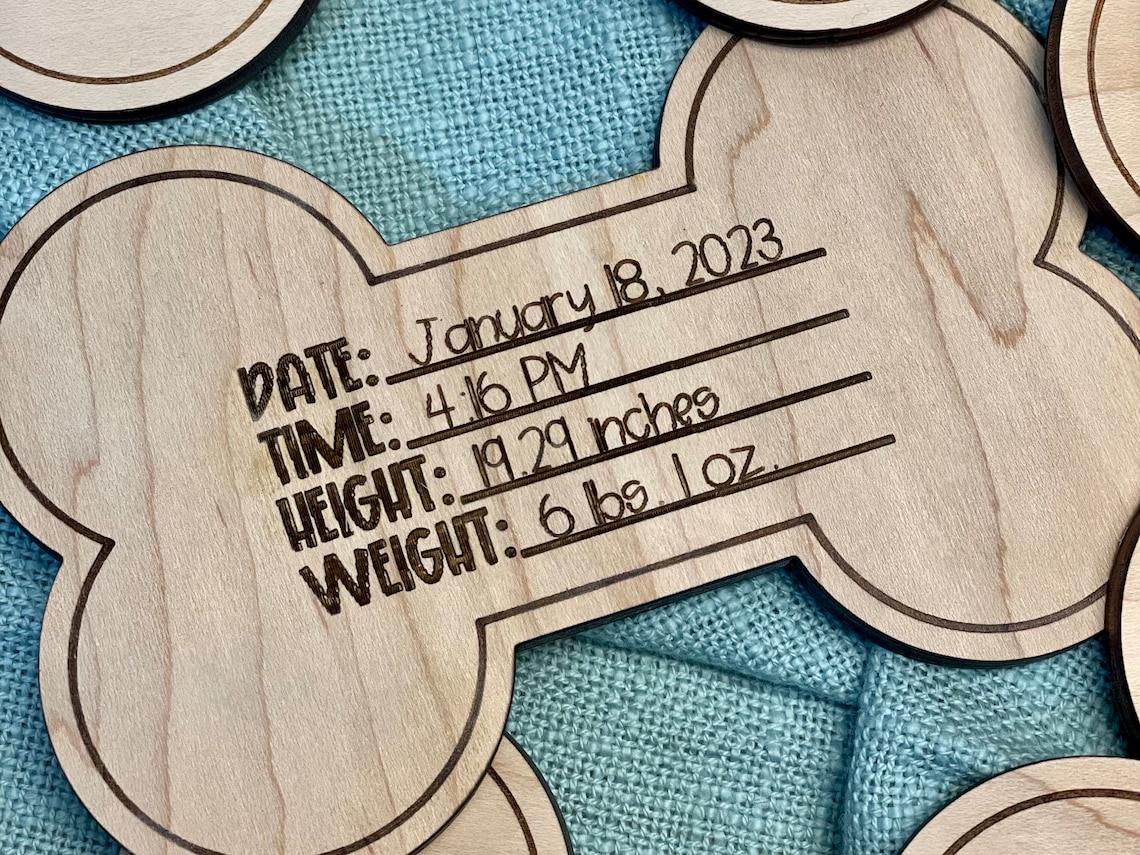 DATE: January 18, 2023
TIME: 4:16 PM
HEIGHT: 19.29 inches
WEIGHT: 6 lbs. 1 oz.